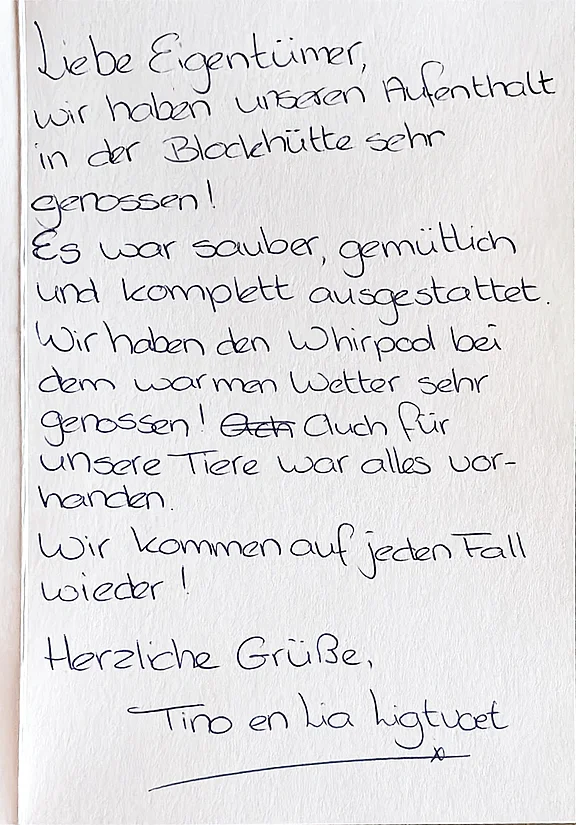 Liebe Eigentümer,
wir haben unseren Aufenthalt
in der Blockhütte sehr
genossen!
Es war sauber, gemütlich
und komplett ausgestattet.
Wir haben den Whirpool bei
dem warmen Wetter sehr
genossen! Auch für
unsere Tiere war alles vor-
handen.
Wir kommen auf jeden Fall
wieder!
Herzliche Grüße,
Tino en Lia